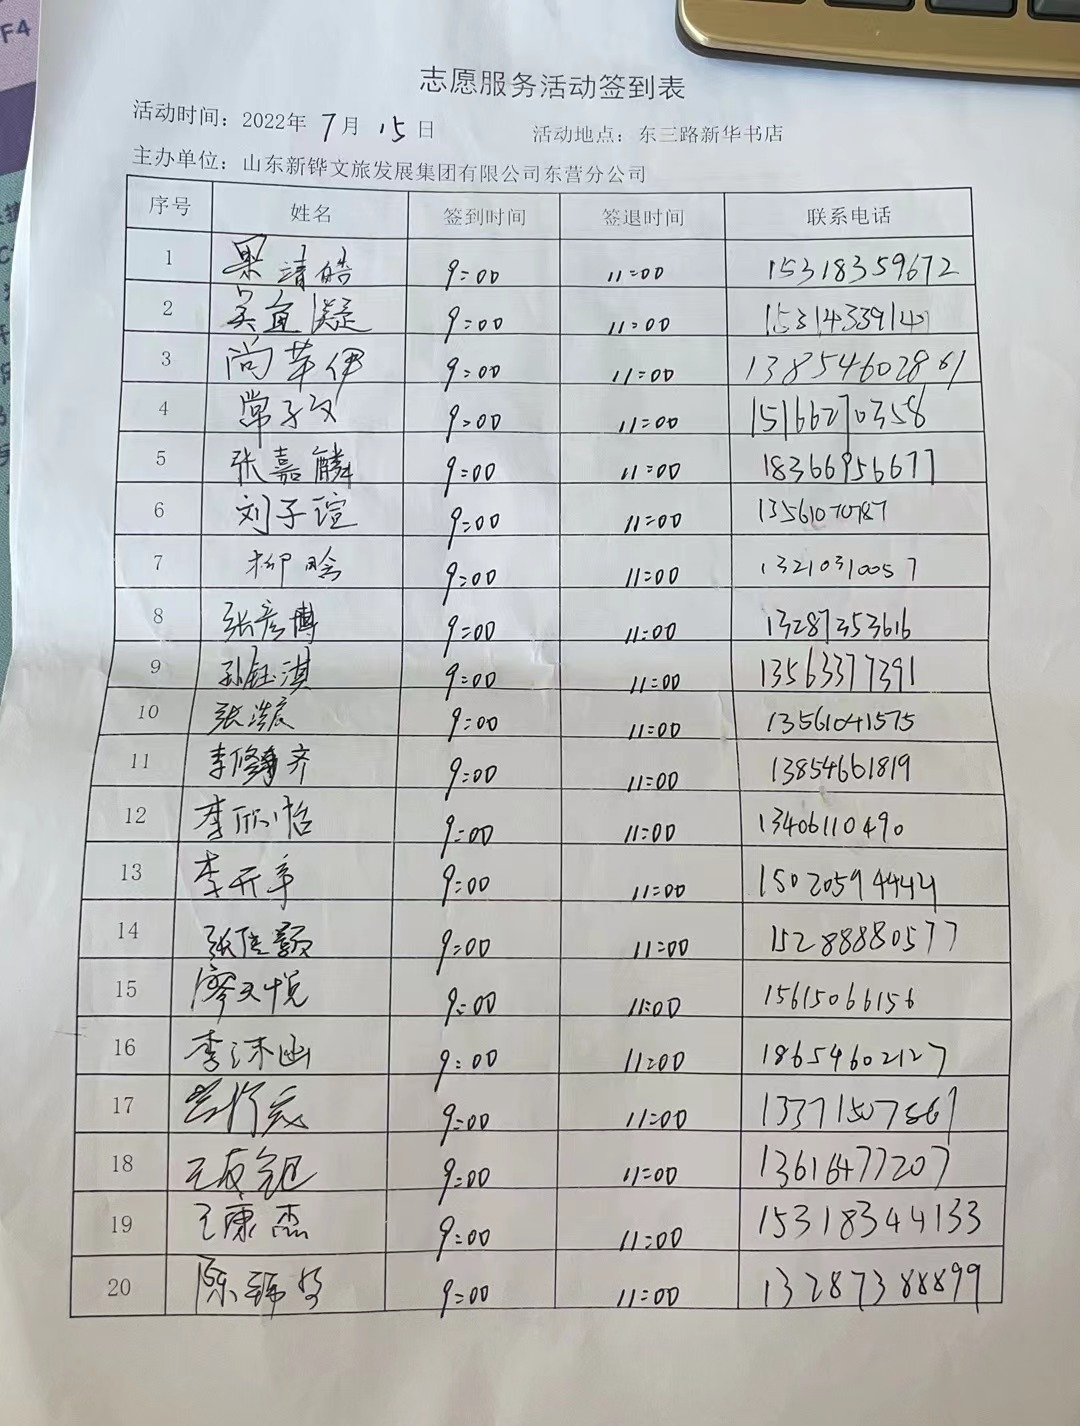 F4
志愿服务活动签到表
活动时间：2022年 7月 15日 活动地点：东三路新华书店
主办单位：山东新铧文旅发展集团有限公司东营分公司
序号 姓名 签到时间 签退时间 联系电话
1 清皓 9:00 11:00 15318359672
2 吴宜凝 9:00 11:00 153143391
3 尚华伊 9:00 11:00 13854602861
4 常子文 9:00 11:00 15166270358
5 张嘉麟 9:00 11:00 18366956677
6 刘子瑄 9:00 11:00 13561070787
7 柳晗 9:00 11:00 13210310057
8 张彦博 9:00 11:00 13287353616
9 孙钰淇 9:00 11:00 13563377391
10 张浩宸 9:00 11:00 13561041575
11 李修齐 9:00 11:00 13854661819
12 李欣怡 9:00 11:00 13406110490
13 李开宇 9:00 11:00 15020594444
14 张佳颖 9:00 11:00 15288880577
15 廖文悦 9:00 11:00 15615066156
16 李沐函 9:00 11:00 18654602127
17 9:00 11:00 13371507561
18 王 9:00 11:00 13616477207
19 王康杰 9:00 11:00 15318344133
20 陈 9:00 11:00 13287388899